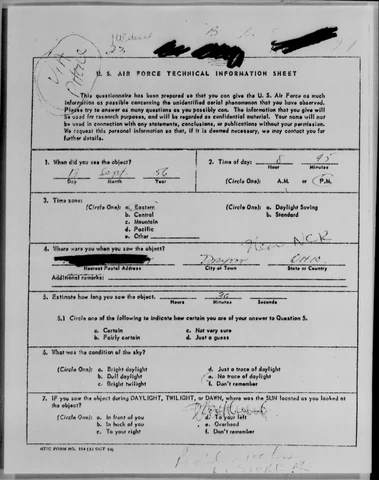 U. S. AIR FORCE TECHNICAL INFORMATION SHEET
This questionnaire has been prepared so that you can give the U. S. Air Force as much
information as possible concerning the unidentified aerial phenomenon that you have observed.
Please try to answer as many questions as you possibly can. The information that you give will
be used for research purposes, and will be regarded as confidential material. Your name will not
be used in connection with any statements, conclusions, or publications without your permission.
We request this personal information so that, if it is deemed necessary, we may contact you for
further details.
1. When did you see the object?
13 Sept. 56
Day Month Year
2. Time of day: 8 45
Hour Minutes
(Circle One): A.M. or P.M.
3. Time zone:
(Circle One): a. Eastern
b. Central
c. Mountain
d. Pacific
e. Other
(Circle One): a. Daylight Saving
b. Standard
4. Where were you when you saw the object?
Near NCR
Dayton Ohio
Nearest Postal Address City or Town State or Country
Additional remarks:
5. Estimate how long you saw the object. 30
Hours Minutes Seconds
5.1 Circle one of the following to indicate how certain you are of your answer to Question 5.
a. Certain
b. Fairly certain
c. Not very sure
d. Just a guess
6. What was the condition of the sky?
(Circle One): a. Bright daylight
b. Dull daylight
c. Bright twilight
d. Just a trace of daylight
e. No trace of daylight
f. Don't remember
7. IF you saw the object during DAYLIGHT, TWILIGHT, or DAWN, where was the SUN located as you looked at
the object?
(Circle One): a. In front of you
b. In back of you
c. To your right
d. To your left
e. Overhead
f. Don't remember
ATIC FORM NO. 164 (13 OCT 54)